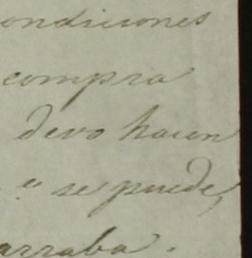 ondiciones
compra
devo hacen
se puede,
arraba.